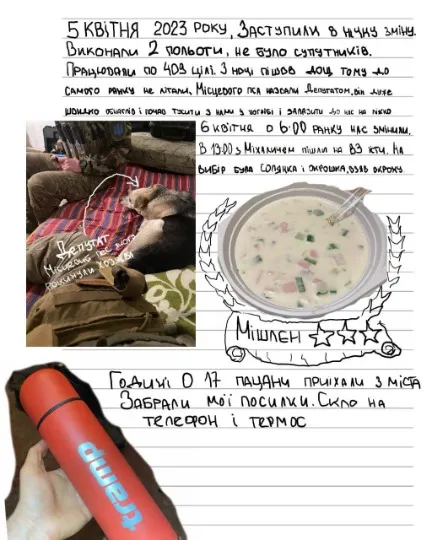 5 КВІТНЯ 2023 РОКУ, ЗАСТУПИЛИ В НІЧНУ ЗМІНУ.
ВИКОНАЛИ 2 ПОЛЬОТИ, НЕ БУЛО СУПУТНИКІВ.
ПРАЦЮВАЛИ ПО 409 ЦІЛІ. З НОЧІ ПІШОВ ДОЩ ТОМУ ДО
САМОГО РАНКУ НЕ ЛІТАЛИ. МІСЦЕВОГО ПСА НАЗВАЛИ ДЕПУТАТОМ, ВІН ДУЖЕ
ШВИДКО І ПОЧАВ З НАМИ У І ДО НАС НА ЛІЖКО
6 КВІТНЯ О 6:00 РАНКУ НАС ЗМІНИЛИ.
В 13:00 З МІХАЛИЧЕМ ПІШЛИ НА 83 КТП. НА
ВИБІР БУЛА СОЛЯНКА І ОКРОШКА, ВЗЯВ ОКРОШКУ
ДЕПУТАТ
МІСЦЕВИЙ ПЕС ЯКОГО
ПОКИНУЛИ ХОЗЯЇВА
МІШЛЕН
ГОДИНІ О 17 ПАЦАНИ ПРИЇХАЛИ З МІСТА
ЗАБРАЛИ МОЇ ПОСИЛКИ. СКЛО НА
ТЕЛЕФОН І ТЕРМОС
tramp